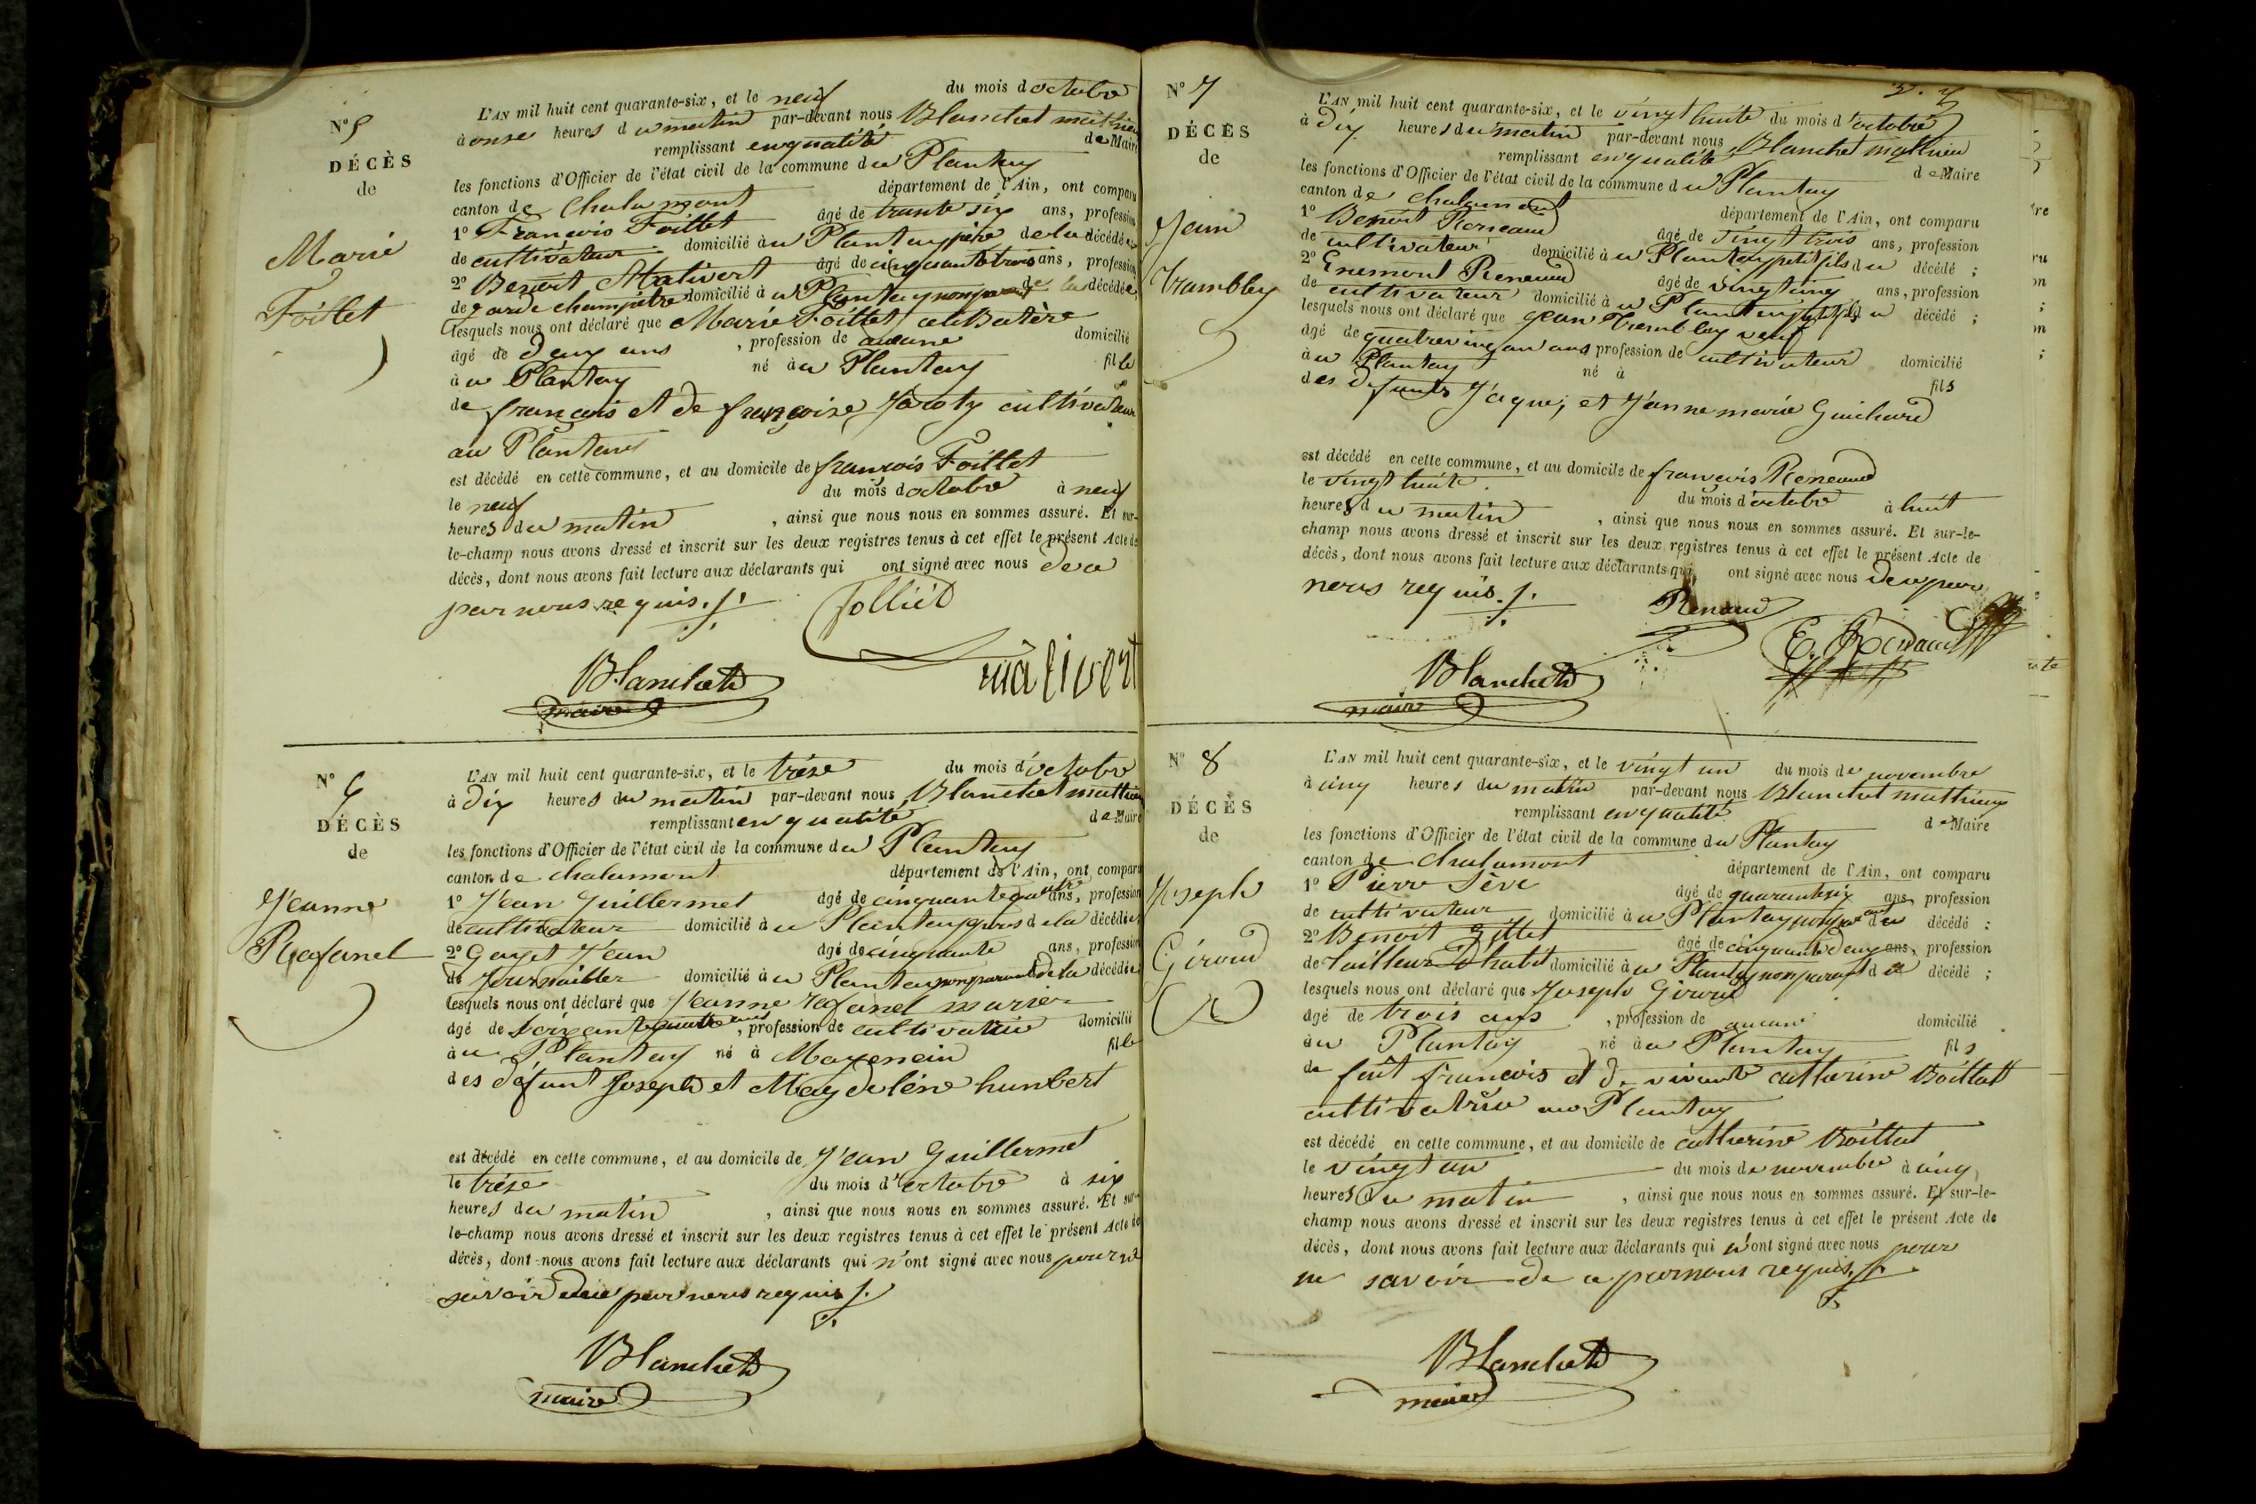 N° 5
DÉCÈS
de
Marie
Foillet
L'AN mil huit cent quarante-six, et le neuf du mois d octobre
à onse heures du matin par-devant nous Blanchet mathieu
remplissant en qualité de Maire
les fonctions d'Officier de l'état civil de la commune du Plantay
canton de Chalamont département de l'Ain, ont comparu
1° François Foillet âgé de trante six ans, profession
de cultivateur domicilié au Plantay père de la décédée
2° Benoit Malivert âgé de cinquante trois ans, profession
de garde champêtre domicilié au Plantay non parent de la décédée
lesquels nous ont déclaré que Marie Foillet celibatère
âgé de deux ans, profession de aucune domicilié
au Plantay né au Plantay fille
de françois et de françoise Jacoty cultivateur
au Plantay
est décédé en cette commune, et au domicile de françois Foillet
le neuf du mois d octobre à neuf
heures du matin, ainsi que nous nous en sommes assuré. Et sur-
le-champ nous avons dressé et inscrit sur les deux registres tenus à cet effet le présent Acte de
décès, dont nous avons fait lecture aux déclarants qui ont signé avec nous de ce
par nous requis ./.
Folliet
malivert
Blanchet
maire
N° 6
DÉCÈS
de
Jeanne
Rafanel
L'AN mil huit cent quarante-six, et le trése du mois d'octobre
à dix heures du matin par-devant nous Blanchet mathieu
remplissant en qualité de Maire
les fonctions d'Officier de l'état civil de la commune du Plantay
canton de chalamont département de l'Ain, ont comparu
1° Jean Guillermet âgé de cinquante quatre ans, profession
de cultivateur domicilié au Plantay de la décédée
2° Gayet Jean âgé de cinquante ans, profession
de Journailler domicilié au Plantay non parent de la décédée
lesquels nous ont déclaré que Jeanne rafanel
âgé de soixante quatre ans, profession de cultivatrice domicilié
au Plantay né à fille
des défunt Joseph et Magdeléne hunbert
est décédé en cette commune, et au domicile de Jean Guillermet
le trése du mois d'octobre à six
heures du matin, ainsi que nous nous en sommes assuré. Et sur-
le-champ nous avons dressé et inscrit sur les deux registres tenus à cet effet le présent Acte de
décès, dont nous avons fait lecture aux déclarants qui n'ont signé avec nous pour ne
savoir de ce par nous requis ./.
Blanchet
maire
N° 7
DÉCÈS
de
Jean
Trambley
L'AN mil huit cent quarante-six, et le vingt huite du mois d'octobre
à dix heures du matin par-devant nous Blanchet mathieu
remplissant en qualité de Maire
les fonctions d'Officier de l'état civil de la commune du Plantay
canton de chalamont département de l'Ain, ont comparu
1° Benoit Reneaud âgé de vingt trois ans, profession
de cultivateur domicilié au Plantay petit fils du décédé ;
2° Enemont Reneaud âgé de vingt cinq ans, profession
de cultivateur domicilié au Plantay petit fils du décédé ;
lesquels nous ont déclaré que Jean Trembley veuf
âgé de quatre vingt un ans profession de cultivateur domicilié
au Plantay né à fils
des defunts Jaque, et Janne marie Guichard
est décédé en cette commune, et au domicile de françois Reneaud
le vingt huite du mois d'octobre à huit
heures du matin, ainsi que nous nous en sommes assuré. Et sur-le-
champ nous avons dressé et inscrit sur les deux registres tenus à cet effet le présent Acte de
décès, dont nous avons fait lecture aux déclarants qui ont signé avec nous de ce par
nous requis ./.
Renaud
E. Renaud
Blanchet
maire
N° 8
DÉCÈS
de
Joseph
Giroud
L'AN mil huit cent quarante-six, et le vingt un du mois de novembre
à cinq heures du matin par-devant nous Blanchet mathieu
remplissant en qualité de Maire
les fonctions d'Officier de l'état civil de la commune du Plantay
canton de chalamont département de l'Ain, ont comparu
1° Pierre Sève âgé de quarante six ans profession
de cultivateur domicilié au Plantay non parent du décédé ;
2° Benoit Gillet âgé de cinquante deux ans, profession
de tailleur D'habit domicilié au Plantay non parent du décédé ;
lesquels nous ont déclaré que Joseph Giroud
âgé de trois ans, profession de aucune domicilié
au Plantay né au Plantay fils
de feüt françois et de vivante catherine Boillat
cultivatrice au Plantay
est décédé en cette commune, et au domicile de catherine Boillat
le vingt un du mois de novembre à cinq
heures du matin, ainsi que nous nous en sommes assuré. Et sur-le-
champ nous avons dressé et inscrit sur les deux registres tenus à cet effet le présent Acte de
décès, dont nous avons fait lecture aux déclarants qui n'ont signé avec nous pour
ne savoir de ce par nous requis ./.
Blanchet
maire